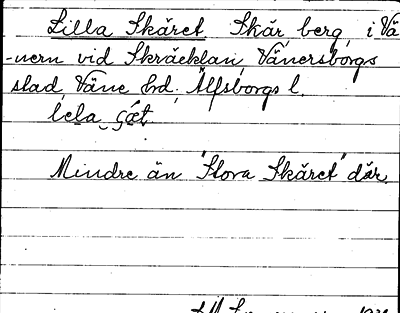 Lilla Skäret Skär berg i Vä
-nern vid Skräcklan, Vänersborgs
stad, Väne hd. Älfsborgs l.
Mindre än "Stora Skäret" där.